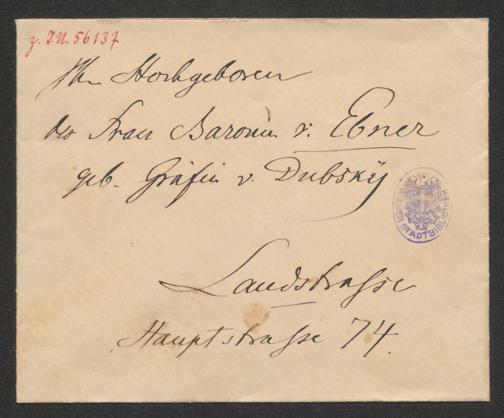 z. I.N. 56137
Ihr Hochgeboren
der Frau Baronin v. Ebner
geb. Gräfin v. Dubský
Landstrasse
Hauptstrasse 74.
STADTBIBLIOTHEK